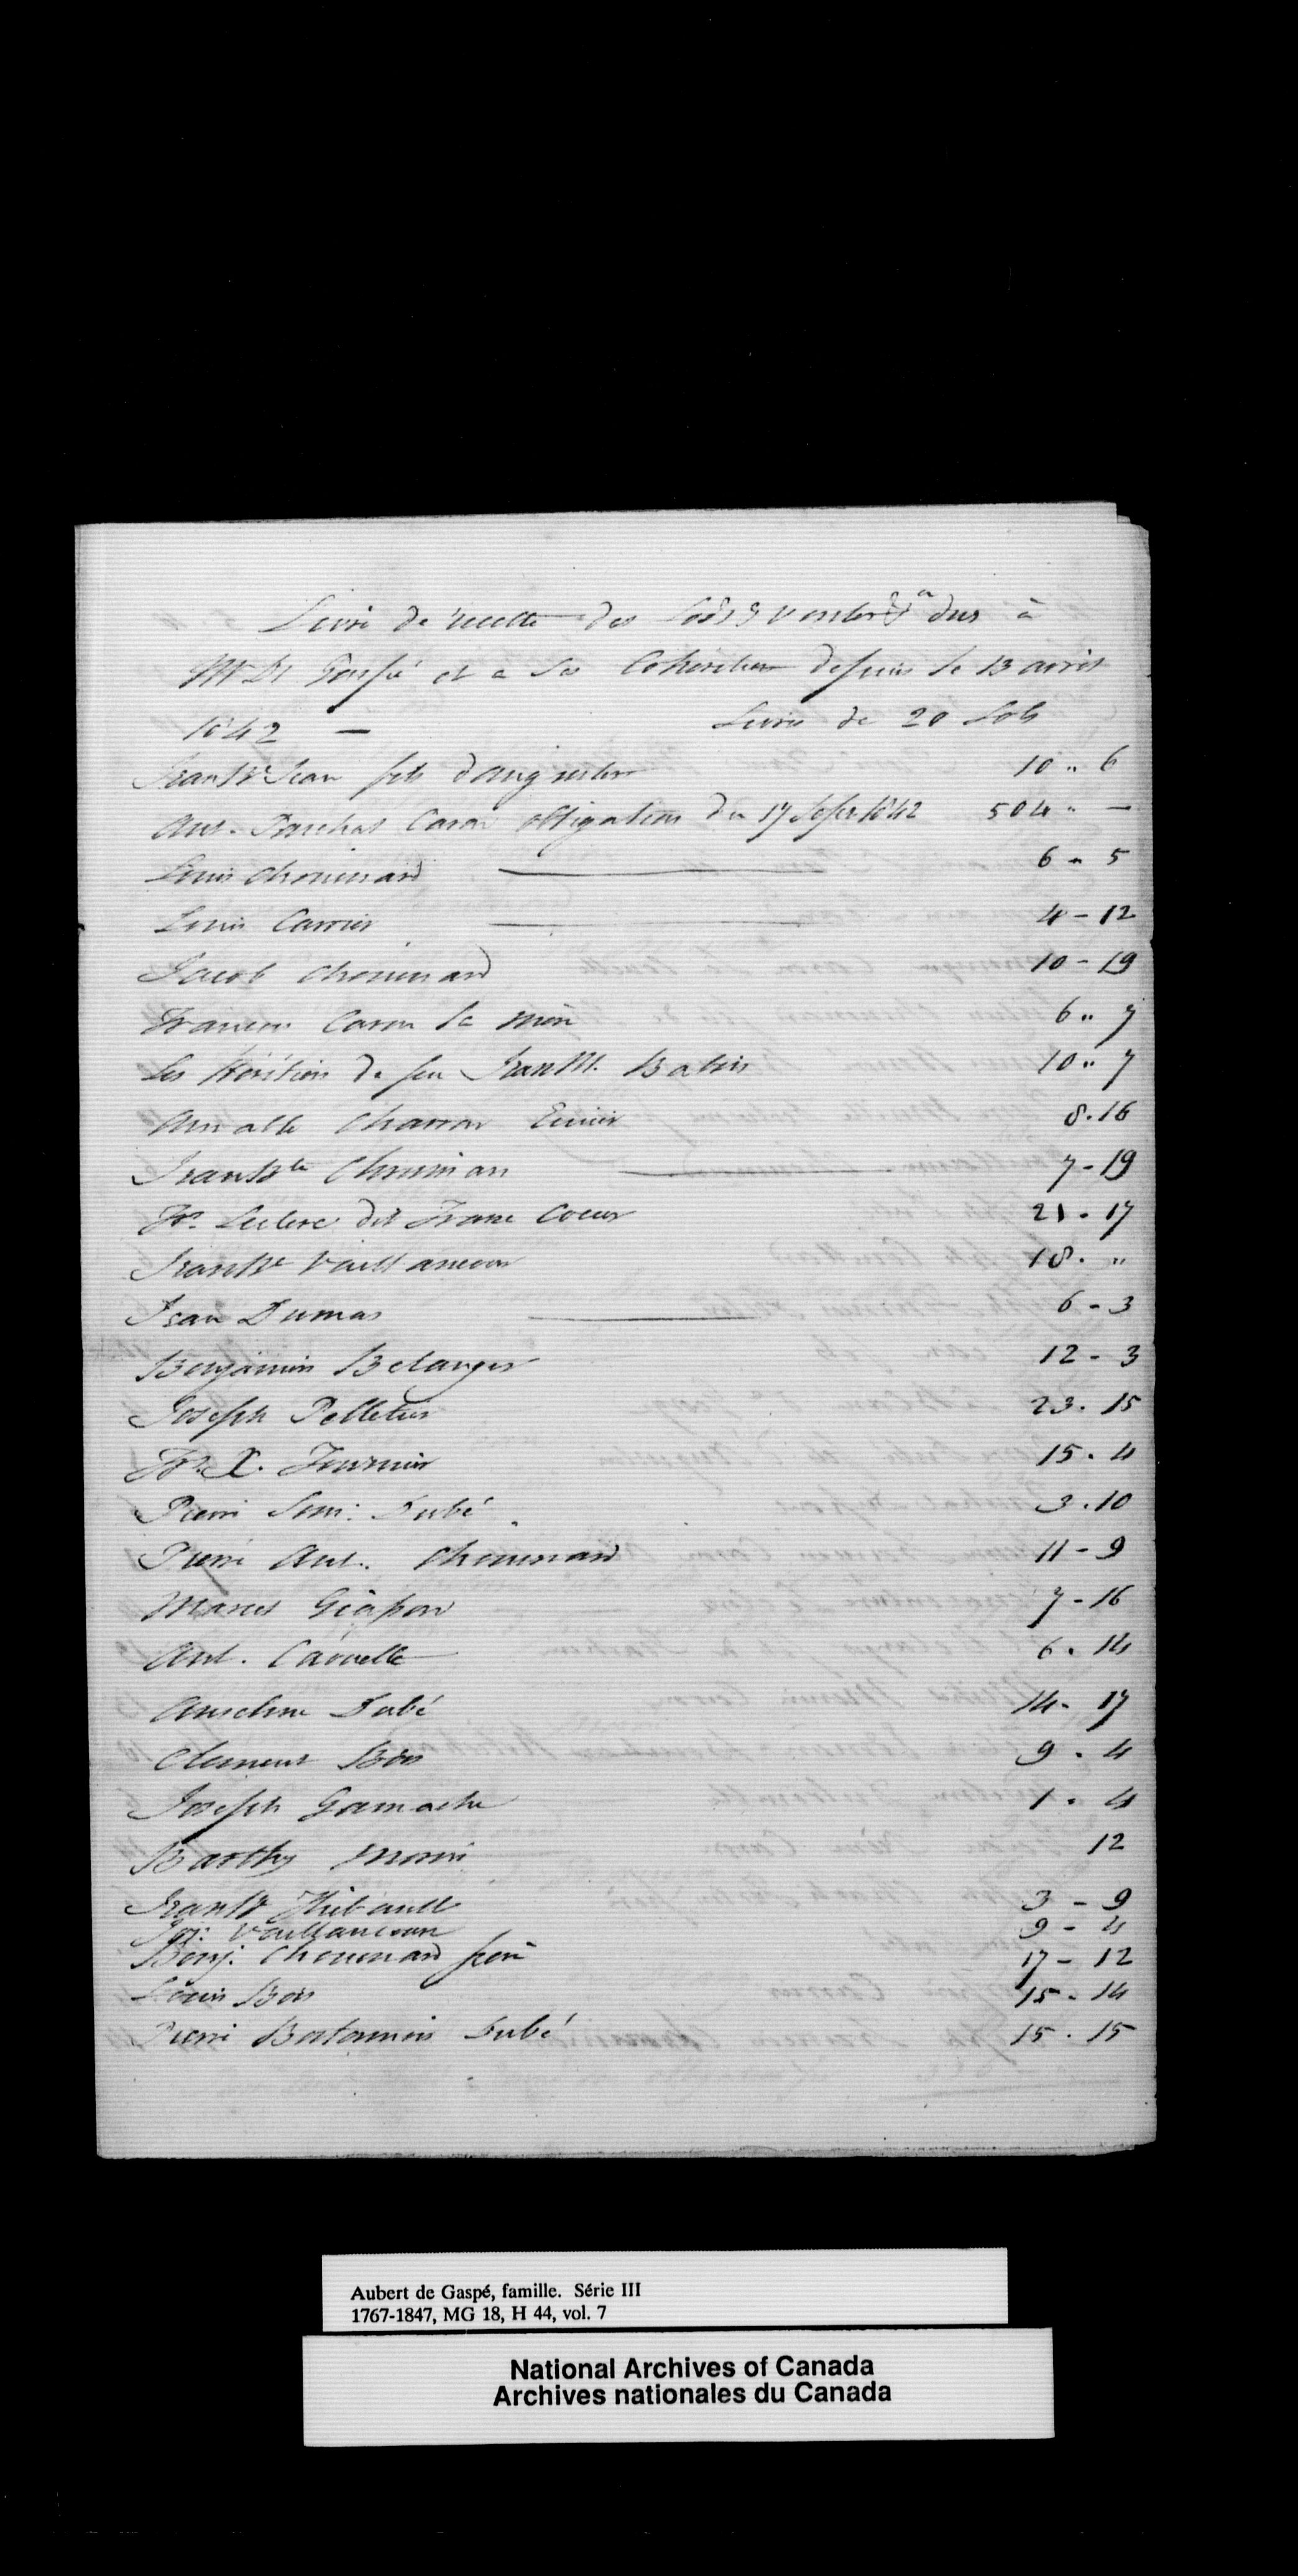 Livre de recette des Lods & ventes dus à
Mr De Gaspé et a ses Cohéritiers depuis le 13 avril
1842 — Livres de 20 Sols
Jean Bte Jean fils d'augustin 10 " 6
Ant. Paschal Caron obligation du 17 Sepr 1842 504 " —
Louis Chouinard 6 " 5
Louis Carrier 4 - 12
Jacob Chouinard 10 - 19
François Caron la mère 6 " 7
Les héritiers de feu Jean M. Babin 10 " 7
Amable Charron Ecuier 8 . 16
Jean Bte Chouinan 7 - 19
Frs. Leclerc dit Franc Coeur 21 - 17
Jean Bte Vaillancour 18 . "
Jean Dumas 6 - 3
Benjamin Belanger 12 - 3
Joseph Pelletier 23 . 15
Frs. X. Fournier 15 . 4
Pierre Dubé 3 . 10
Pierre Ant. Chouinard 11 - 9
Marcel Giasson 7 - 16
Ant. Caouette 6 . 14
Anselme Dubé 14 - 17
Clement Bois 9 . 4
Joseph Gamache 1 . 4
Barthy Morin 12
Jean Bte Thibault 3 - 9
Jos: Vaillancour 9 - 4
Benj. Chouinard père 17 - 12
Louis Bois 15 . 14
Pierre Dubé 15 . 15
Aubert de Gaspé, famille. Série III
1767-1847, MG 18, H 44, vol. 7
National Archives of Canada
Archives nationales du Canada